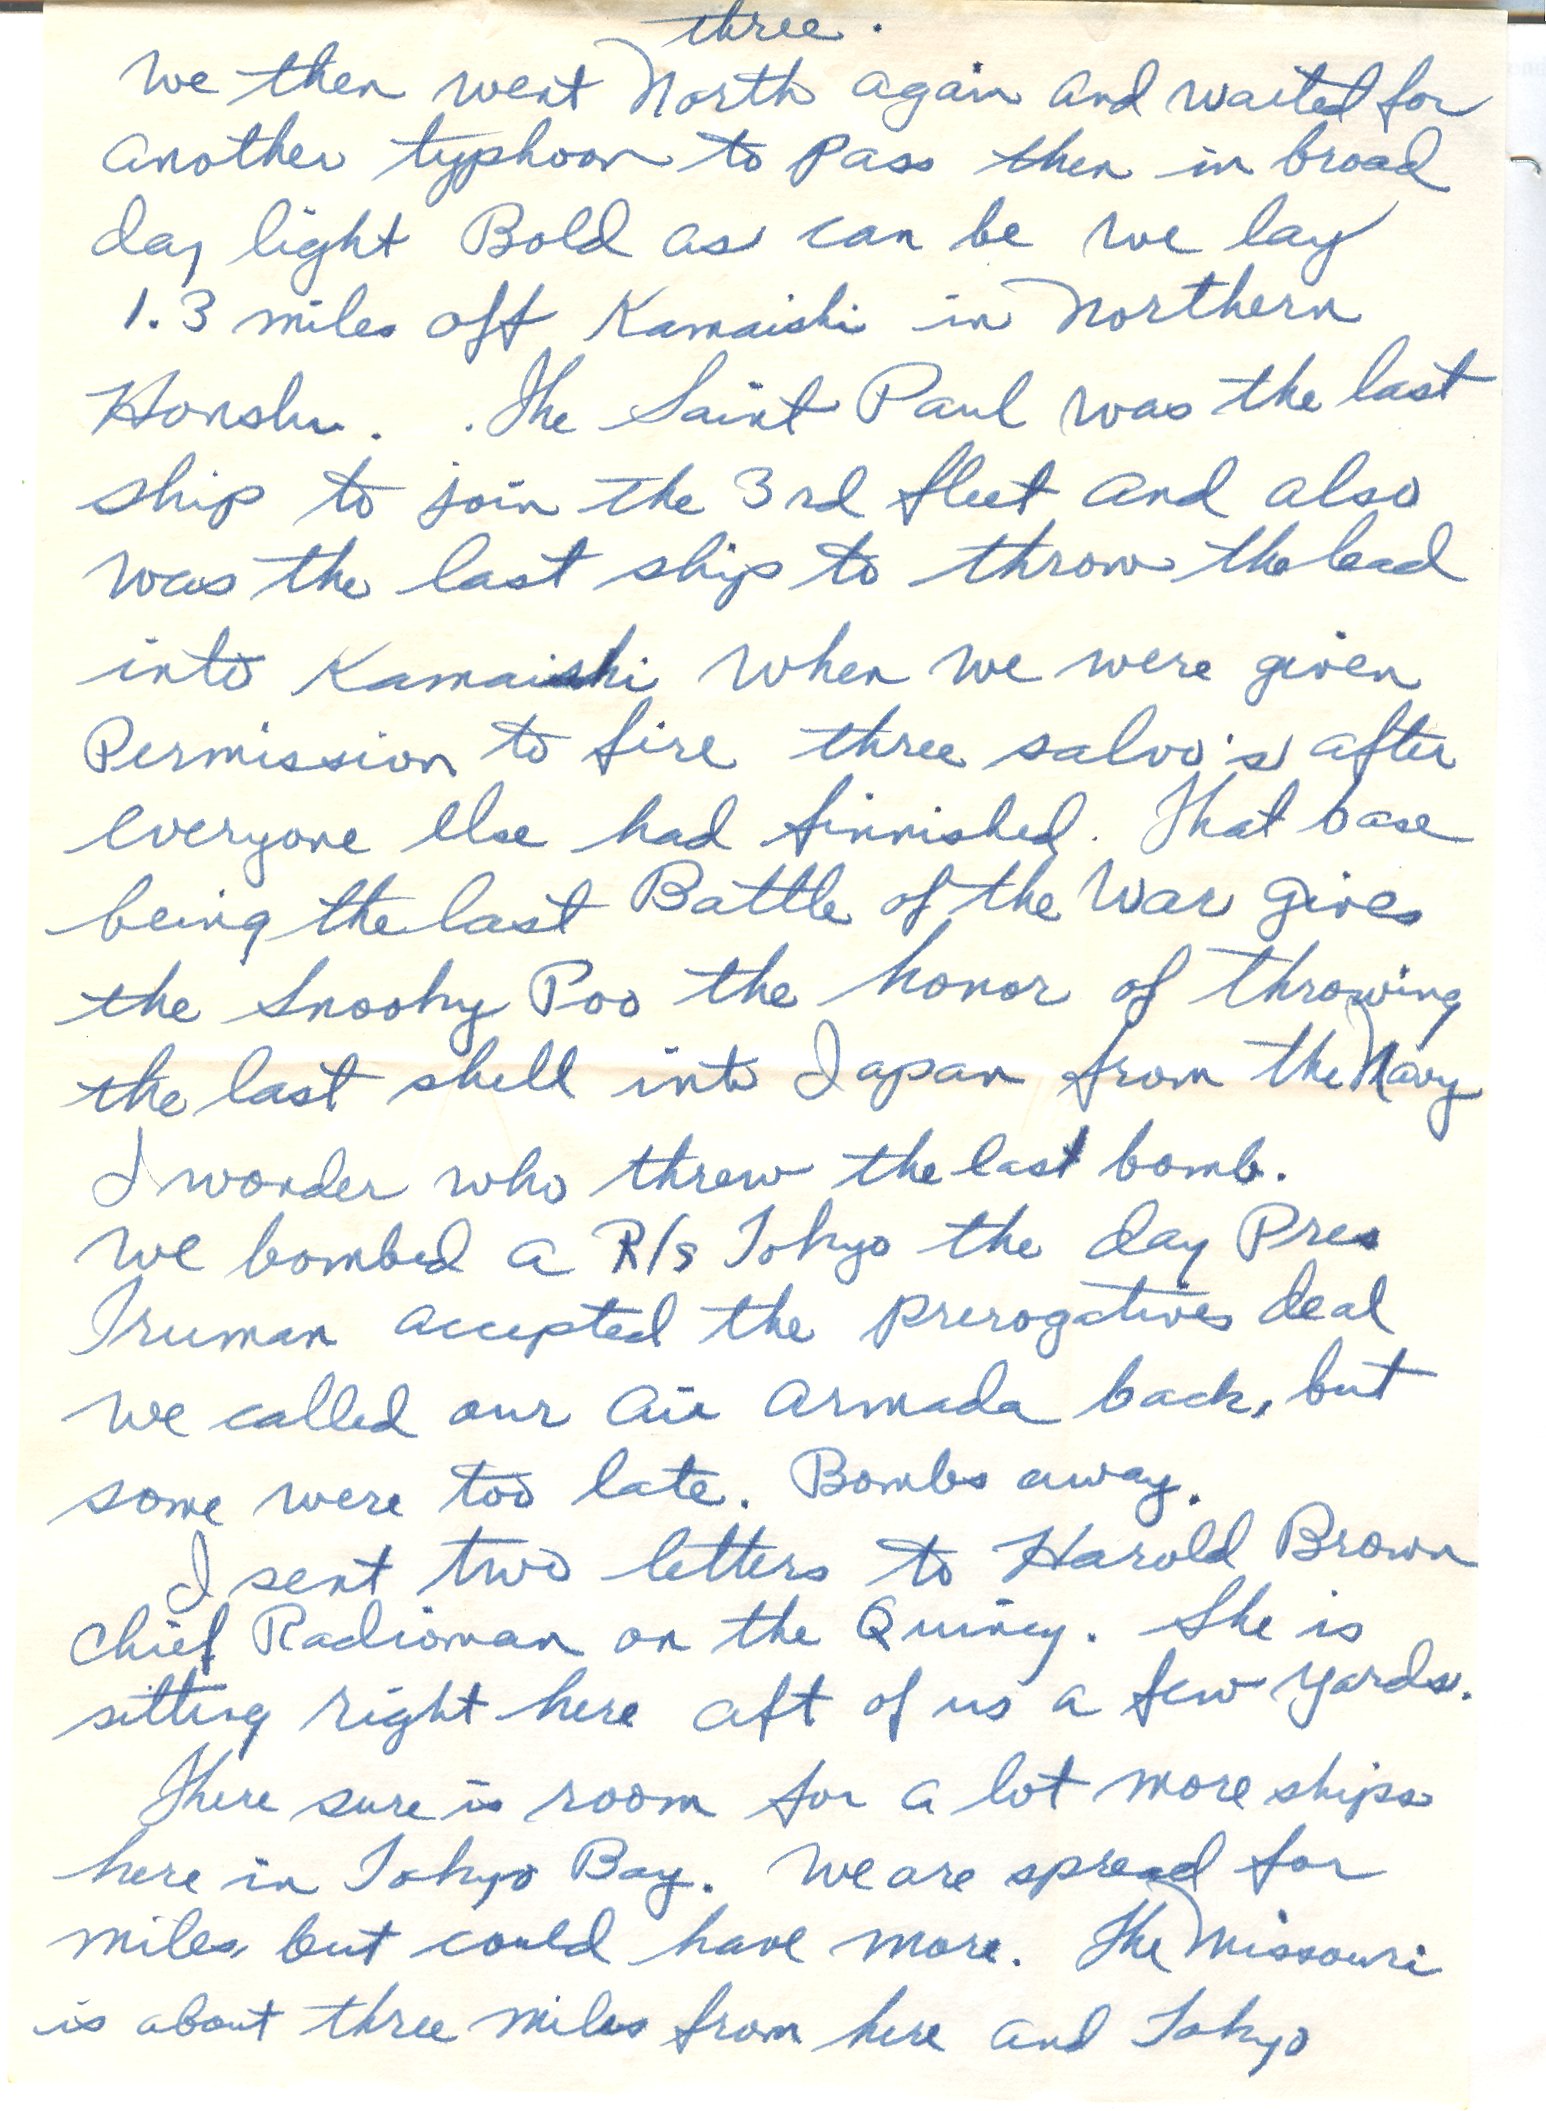 three.
We then went North again and waited for
another typhoon to pass then in broad
day light Bold as can be we lay
1.3 miles off Kamaishi in Northern
Honshu. . The Saint Paul was the last
ship to join the 3rd fleet and also
was the last ship to throw the lead
into Kamaishi when we were given
Permission to fire three salvo's after
everyone else had finnished. That base
being the last Battle of the War gives
the Snooky Poo the honor of throwing
the last shell into Japan from the Navy
I wonder who threw the last bomb.
We bombed a R/S Tokyo the day Pres
Truman accepted the prerogatives deal
We called our air armada back, but
some were too late. Bombs away.
I sent two letters to Harold Brown
Chief Radioman on the Quincy. She is
sitting right here aft of us a few yards.
There sure is room for a lot more ships
here in Tokyo Bay. We are spread for
miles but could have more. The Missouri
is about three miles from here and Tokyo